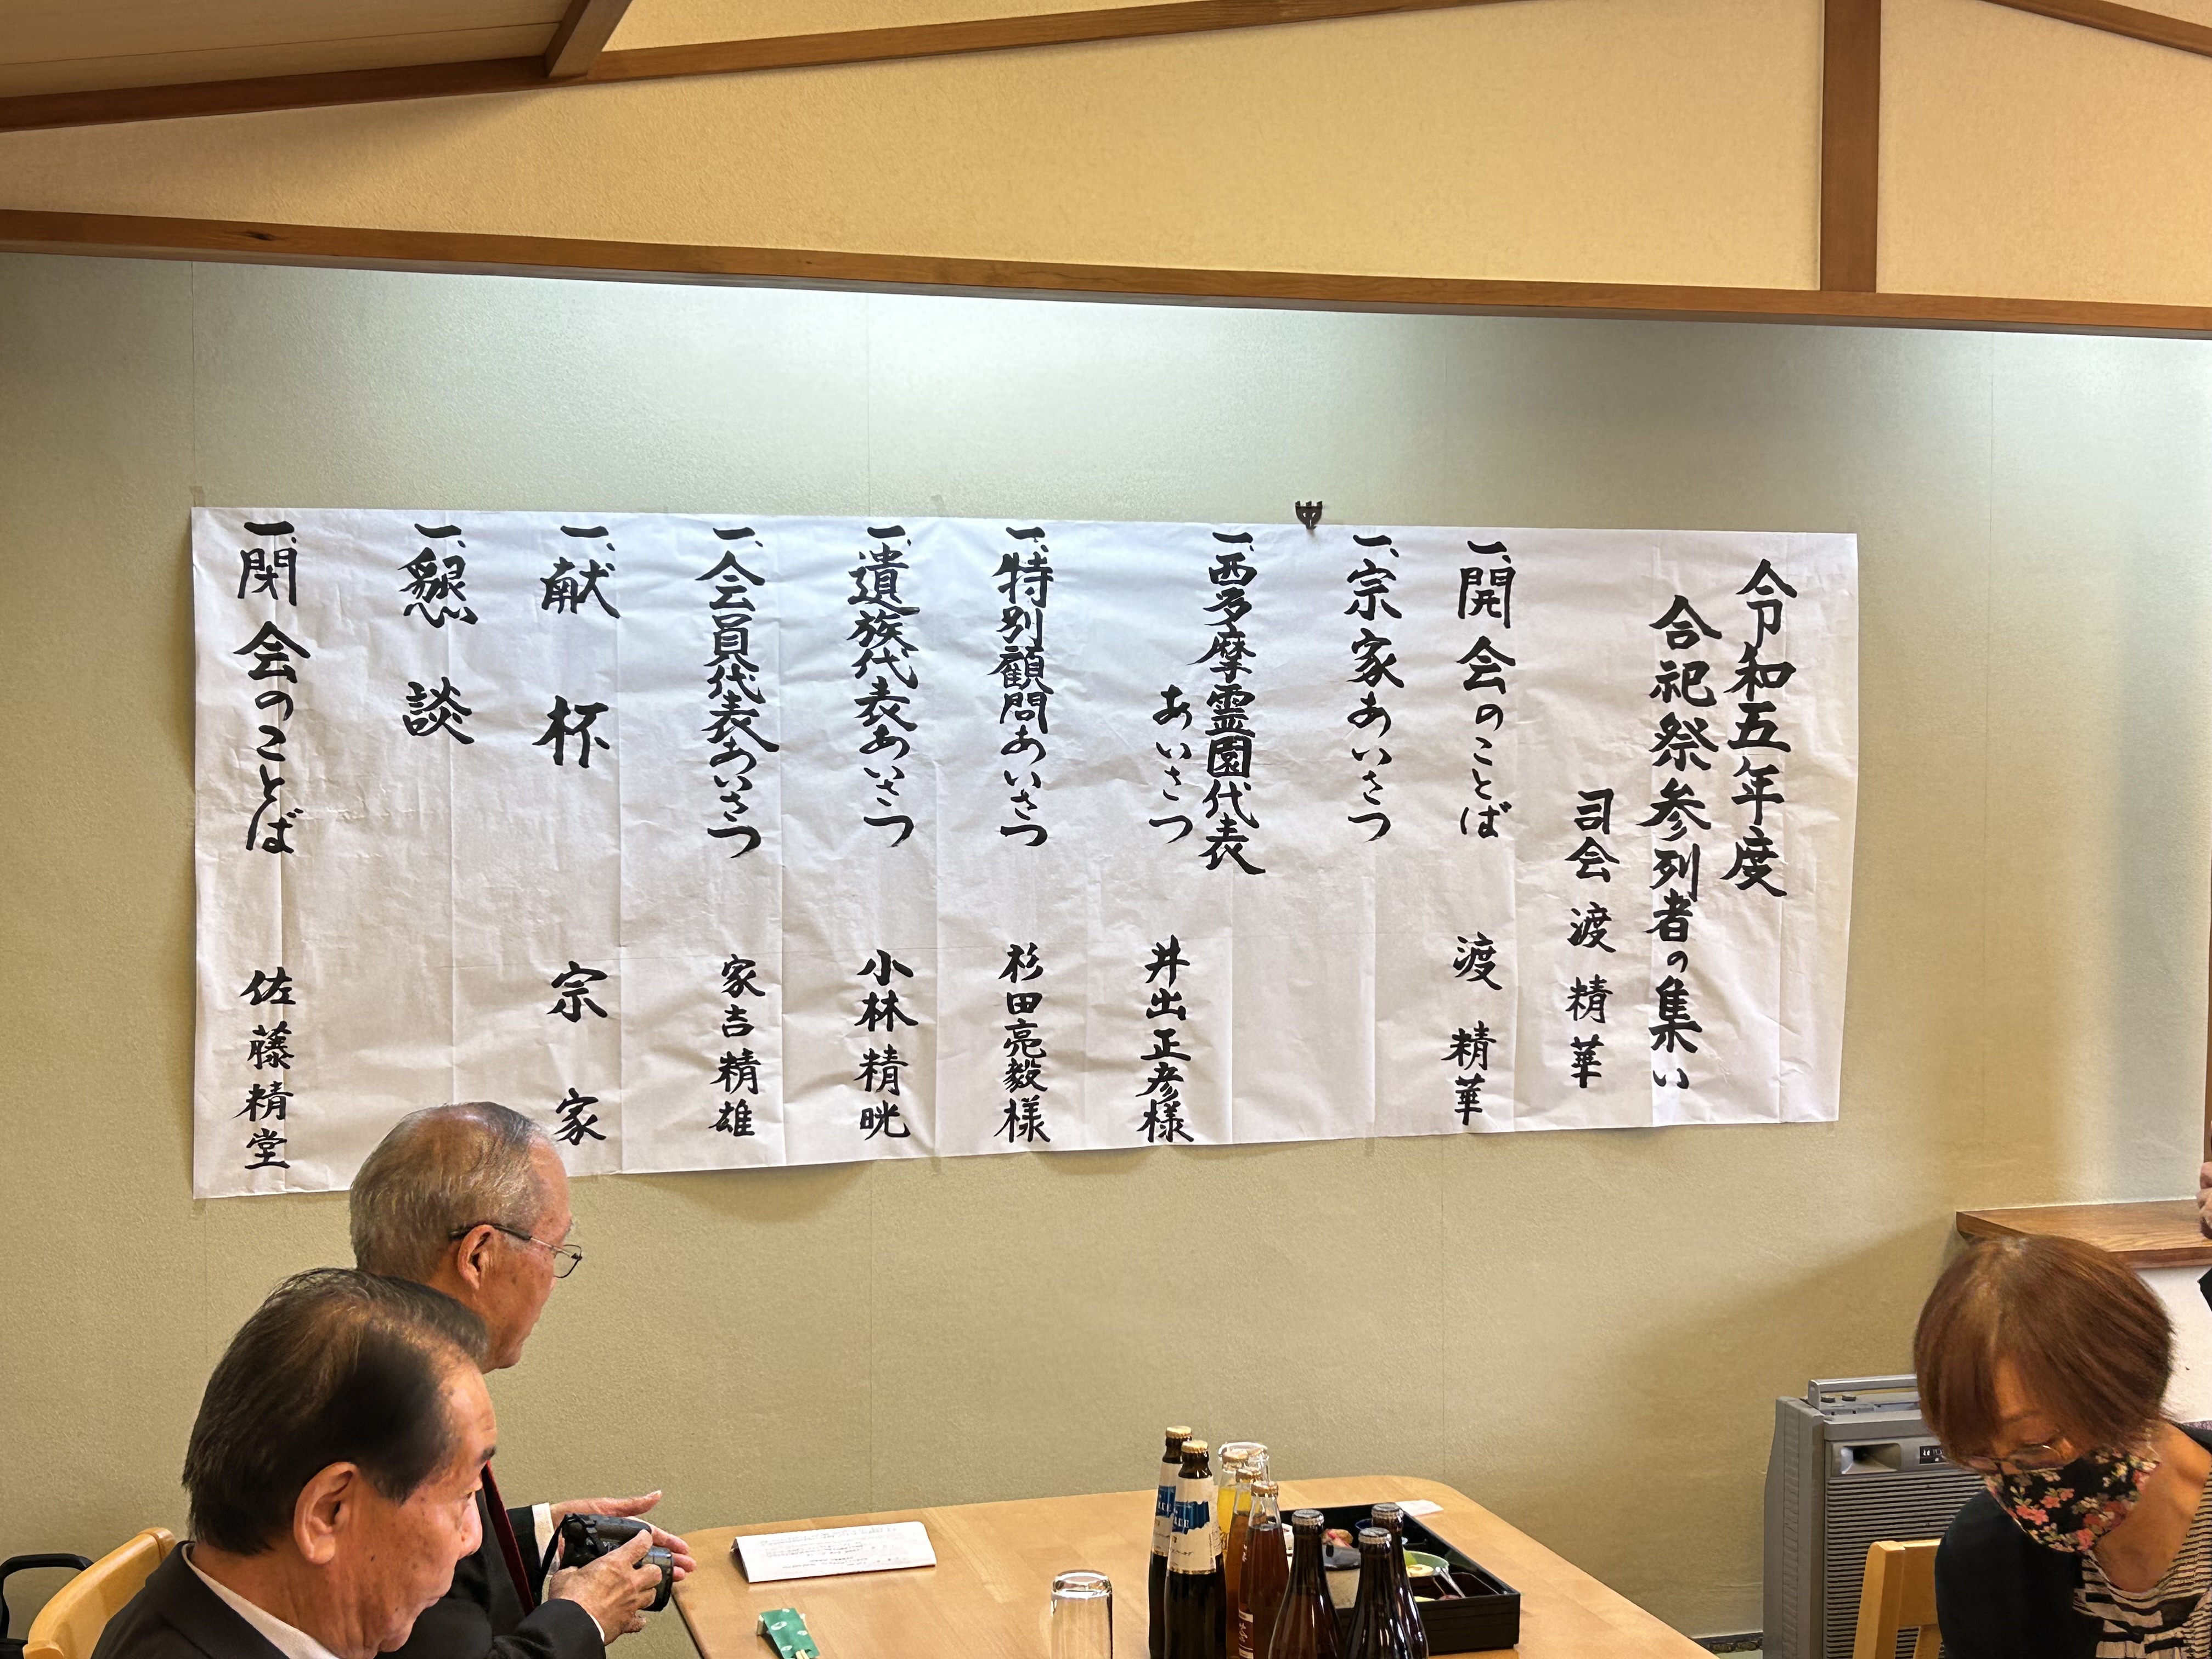 令和五年度
合祀祭参列者の集い
司会 渡 精華
一、開会のことば 渡 精華
一、宗家あいさつ
一、西多摩霊園代表
あいさつ 井出正彦様
一、特別顧問あいさつ 杉田亮毅様
一、遺族代表あいさつ 小林精晄
一、会員代表あいさつ 家吉精雄
一、献杯 宗家
一、懇談
一、閉会のことば 佐藤精堂